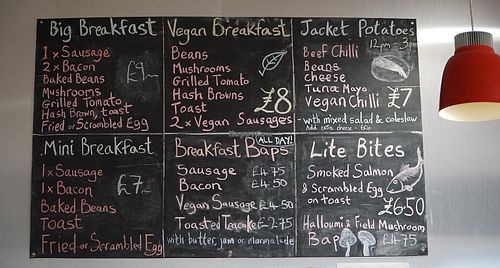 Big Breakfast
1 x Sausage
2 x Bacon
Baked Beans
Mushrooms
Grilled Tomato
Hash Brown, toast
Fried or Scrambled Egg
£9
Vegan Breakfast
Beans
Mushrooms
Grilled Tomato
Hash Browns
Toast
2 x Vegan Sausages
£8
Jacket Potatoes
12pm - 3pm
Beef Chilli
Beans
Cheese
Tuna Mayo
Vegan Chilli
£7
- with mixed salad & coleslaw
Add extra cheese - 60p
Mini Breakfast
1 x Sausage
1 x Bacon
Baked Beans
Toast
Fried or Scrambled Egg
£7
Breakfast Baps
ALL DAY!
Sausage £4.75
Bacon £4.50
Vegan Sausage £4.50
Toasted Teacake £2.75
with butter, jam or marmalade
Lite Bites
Smoked Salmon
& Scrambled Egg
on toast
£6.50
Halloumi & Field Mushroom
Bap £4.75